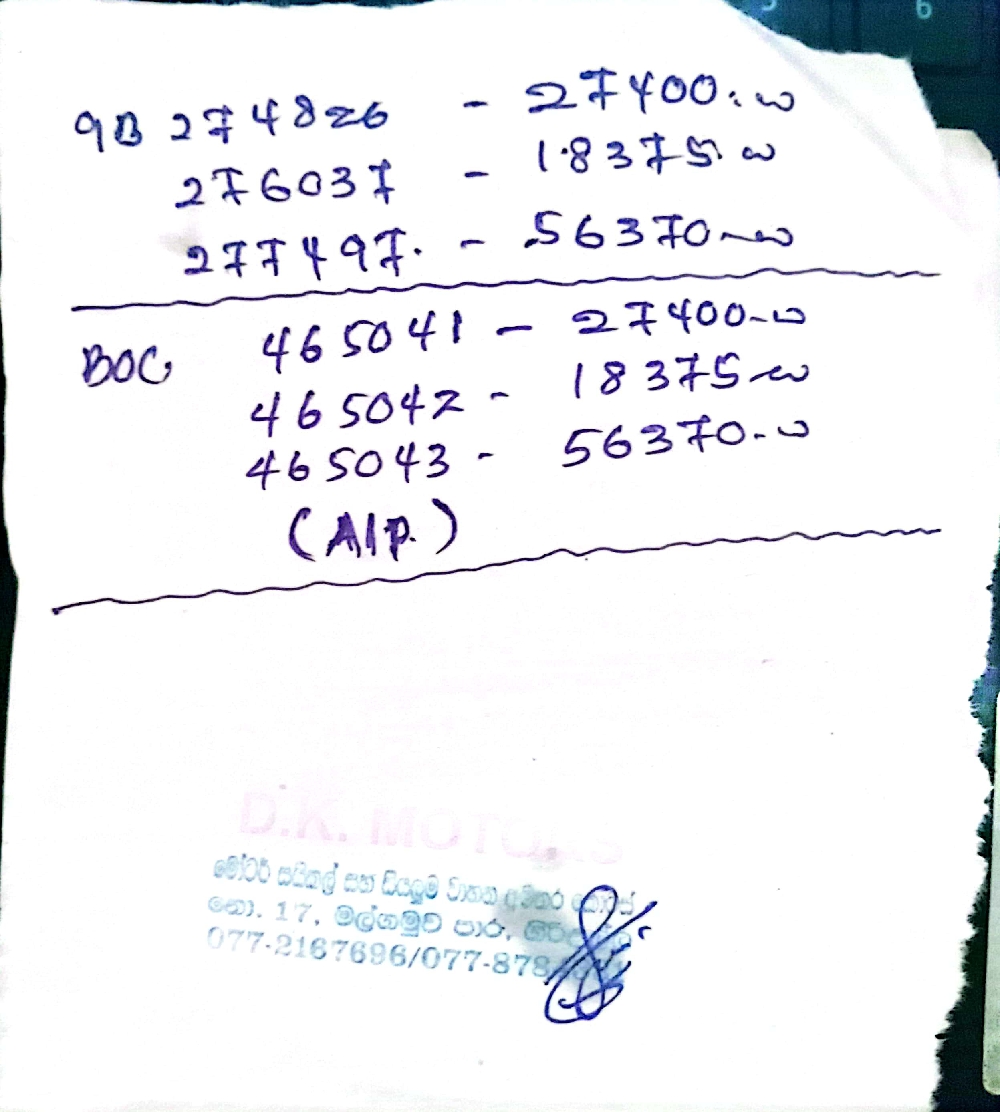 9B 274826 - 27400.00
276037 - 18375.00
277497. - 56370-00
BOC 465041 - 27400-00
465042 - 18375-00
465043 - 56370-00
(A/P.)
D.K. MOTORS
මෝටර් සයිකල් සහ සියලුම වාහන අමතර කොටස්
නො. 17, මල්ගමුව පාර,
077-2167696/077-878